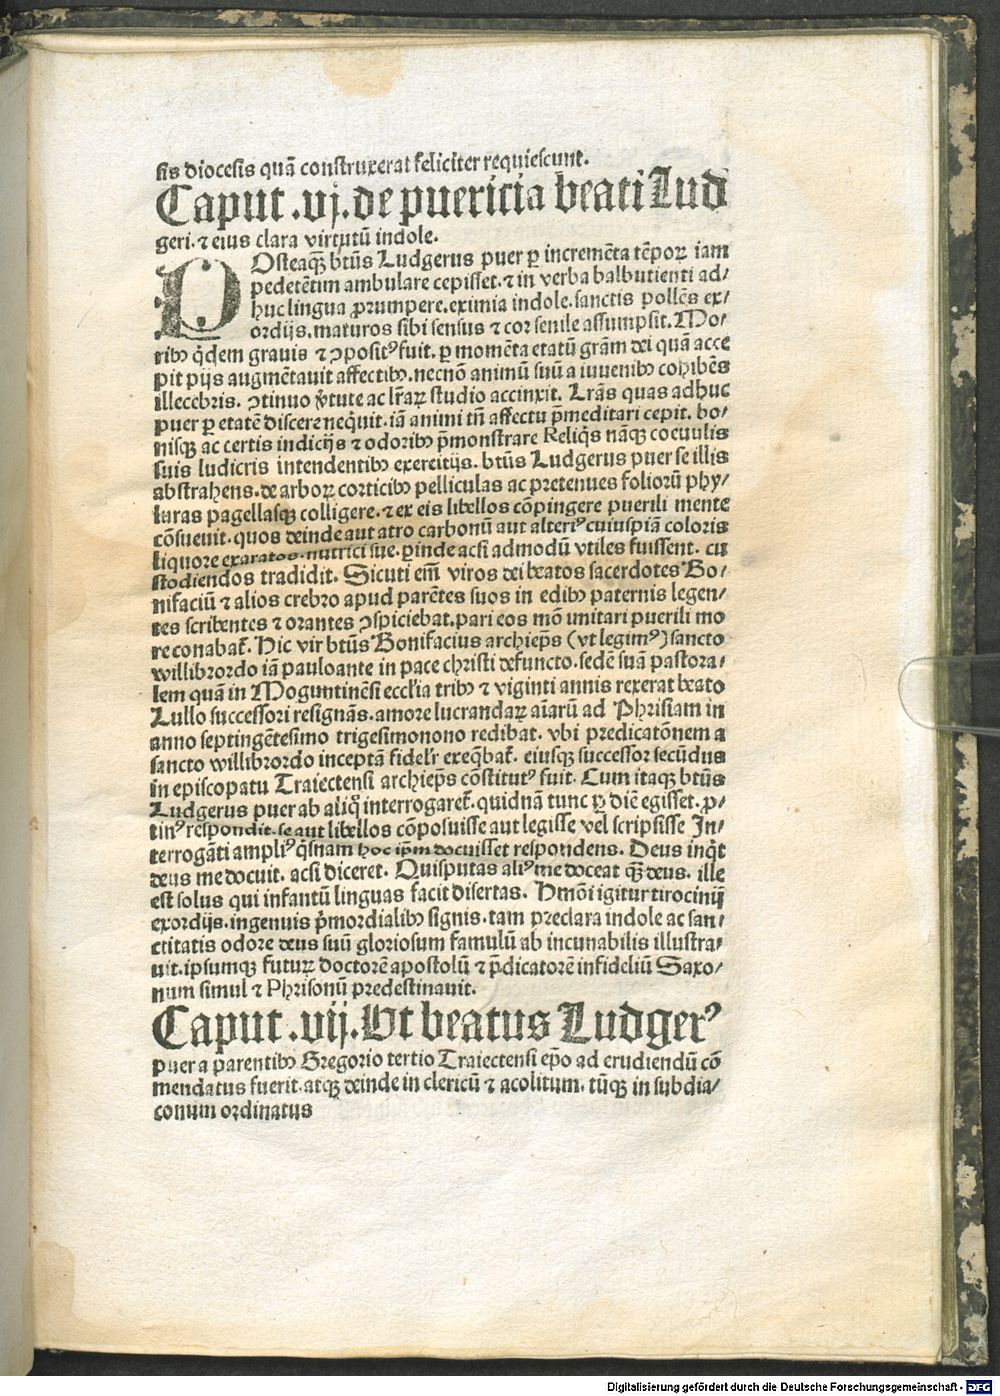 sis diocesis quā construxerat feliciter requiescunt.
Caput .vj. de puericia beati Lud
geri. ⁊ eius clara virtutū indole.
POsteaqꝫ btūs Ludgerus puer ꝑ incremēta tēpoꝝ iam
pedetētim ambulare cepisset. ⁊ in verba balbutienti ad/
huc lingua ꝓrumpere. eximia indole. sanctis pollēs ex/
ordijs. maturos sibi sensus ⁊ cor senile assumpsit. Mo/
ribꝰ q̇dem grauis ⁊ ꝯpositꝰ fuit. ꝑ momēta etatū grām dei quā acce
pit pijs augmētauit affectibꝰ. necnō animū suū a iuuenibꝰ cohibēs
illecebris. ꝯtinuo v̄tute ac lr̄aꝝ studio accinxit. Lrās quas adhuc
puer ꝑ etatē discere neq̇uit. iā animi tn̄ affectu p̄meditari cepit. bo/
nisqꝫ ac certis indicijs ⁊ odoribꝰ p̄monstrare Reliq̇s nāqꝫ coeuulis
suis ludicris intendentibꝰ exercitijs. btūs Ludgerus puer se illis
abstrahens. de arboꝝ corticibꝰ pelliculas ac pretenues folioꝝ phy/
luras pagellasqꝫ colligere. ⁊ ex eis libellos cōpingere puerili mente
cōsueuit. quos deinde aut atro carbonū aut alteriꝰ cuiuspiā coloris
liquore exaratos. nutrici sue. ꝑinde acsi admodū vtiles fuissent. cu
stodiendos tradidit. Sicuti em̄ viros dei beatos sacerdotes Bo/
nifaciū ⁊ alios crebro apud parētes suos in edibꝰ paternis legen/
tes scribentes ⁊ orantes ꝯspiciebat. pari eos mō imitari puerili mo
re conabat᷑. Hic vir btūs Bonifacius archiep̄s (vt legimꝰ) sancto
willibrordo iā pauloante in pace christi defuncto. sedē suā pastora/
lem quā in Moguntinēsi eccl'ia tribꝰ ⁊ viginti annis rexerat beato
Lullo successori resignās. amore lucrandaꝝ aīarū ad Phrisiam in
anno septingētesimo trigesimonono redibat. vbi predicatōnem a
sancto willibrordo inceptā fidelr̄ exeq̄bat᷑. eiusqꝫ successor secūdus
in episcopatu Traiectensi archiep̄s cōstitutꝰ fuit. Cum itaqꝫ btūs
Ludgerus puer ab aliq̊ interrogaret᷑. quidnā tunc ꝑ diē egisset. ꝓ/
tinꝰ respondit. se aut libellos cōposuisse aut legisse vel scripsisse In/
terrogāti ampliꝰ q̇snam hoc ip̄m docuisset respondens. Deus inq̇t
deus me docuit. acsi diceret. Quis putas aliꝰ me doceat qꝫ deus. ille
est solus qui infantū linguas facit disertas. Hmōi igitur tirocinij
exordijs. ingenuis p̄mordialibꝰ signis. tam preclara indole ac san/
ctitatis odore deus suū gloriosum famulū ab incunabilis illustra/
uit. ipsumqꝫ futuꝝ doctorē apostolū ⁊ p̄dicatorē infideliū Saxo/
num simul ⁊ Phrisonū predestinauit.
Caput .vij. Ut beatus Ludgerꝰ
puer a parentibꝰ Gregorio tertio Traiectensi ep̄o ad erudiendū cō
mendatus fuerit. atqꝫ deinde in clericū ⁊ acolitum. tūqꝫ in subdia/
conum ordinatus
Digitalisierung gefördert durch die Deutsche Forschungsgemeinschaft - DFG